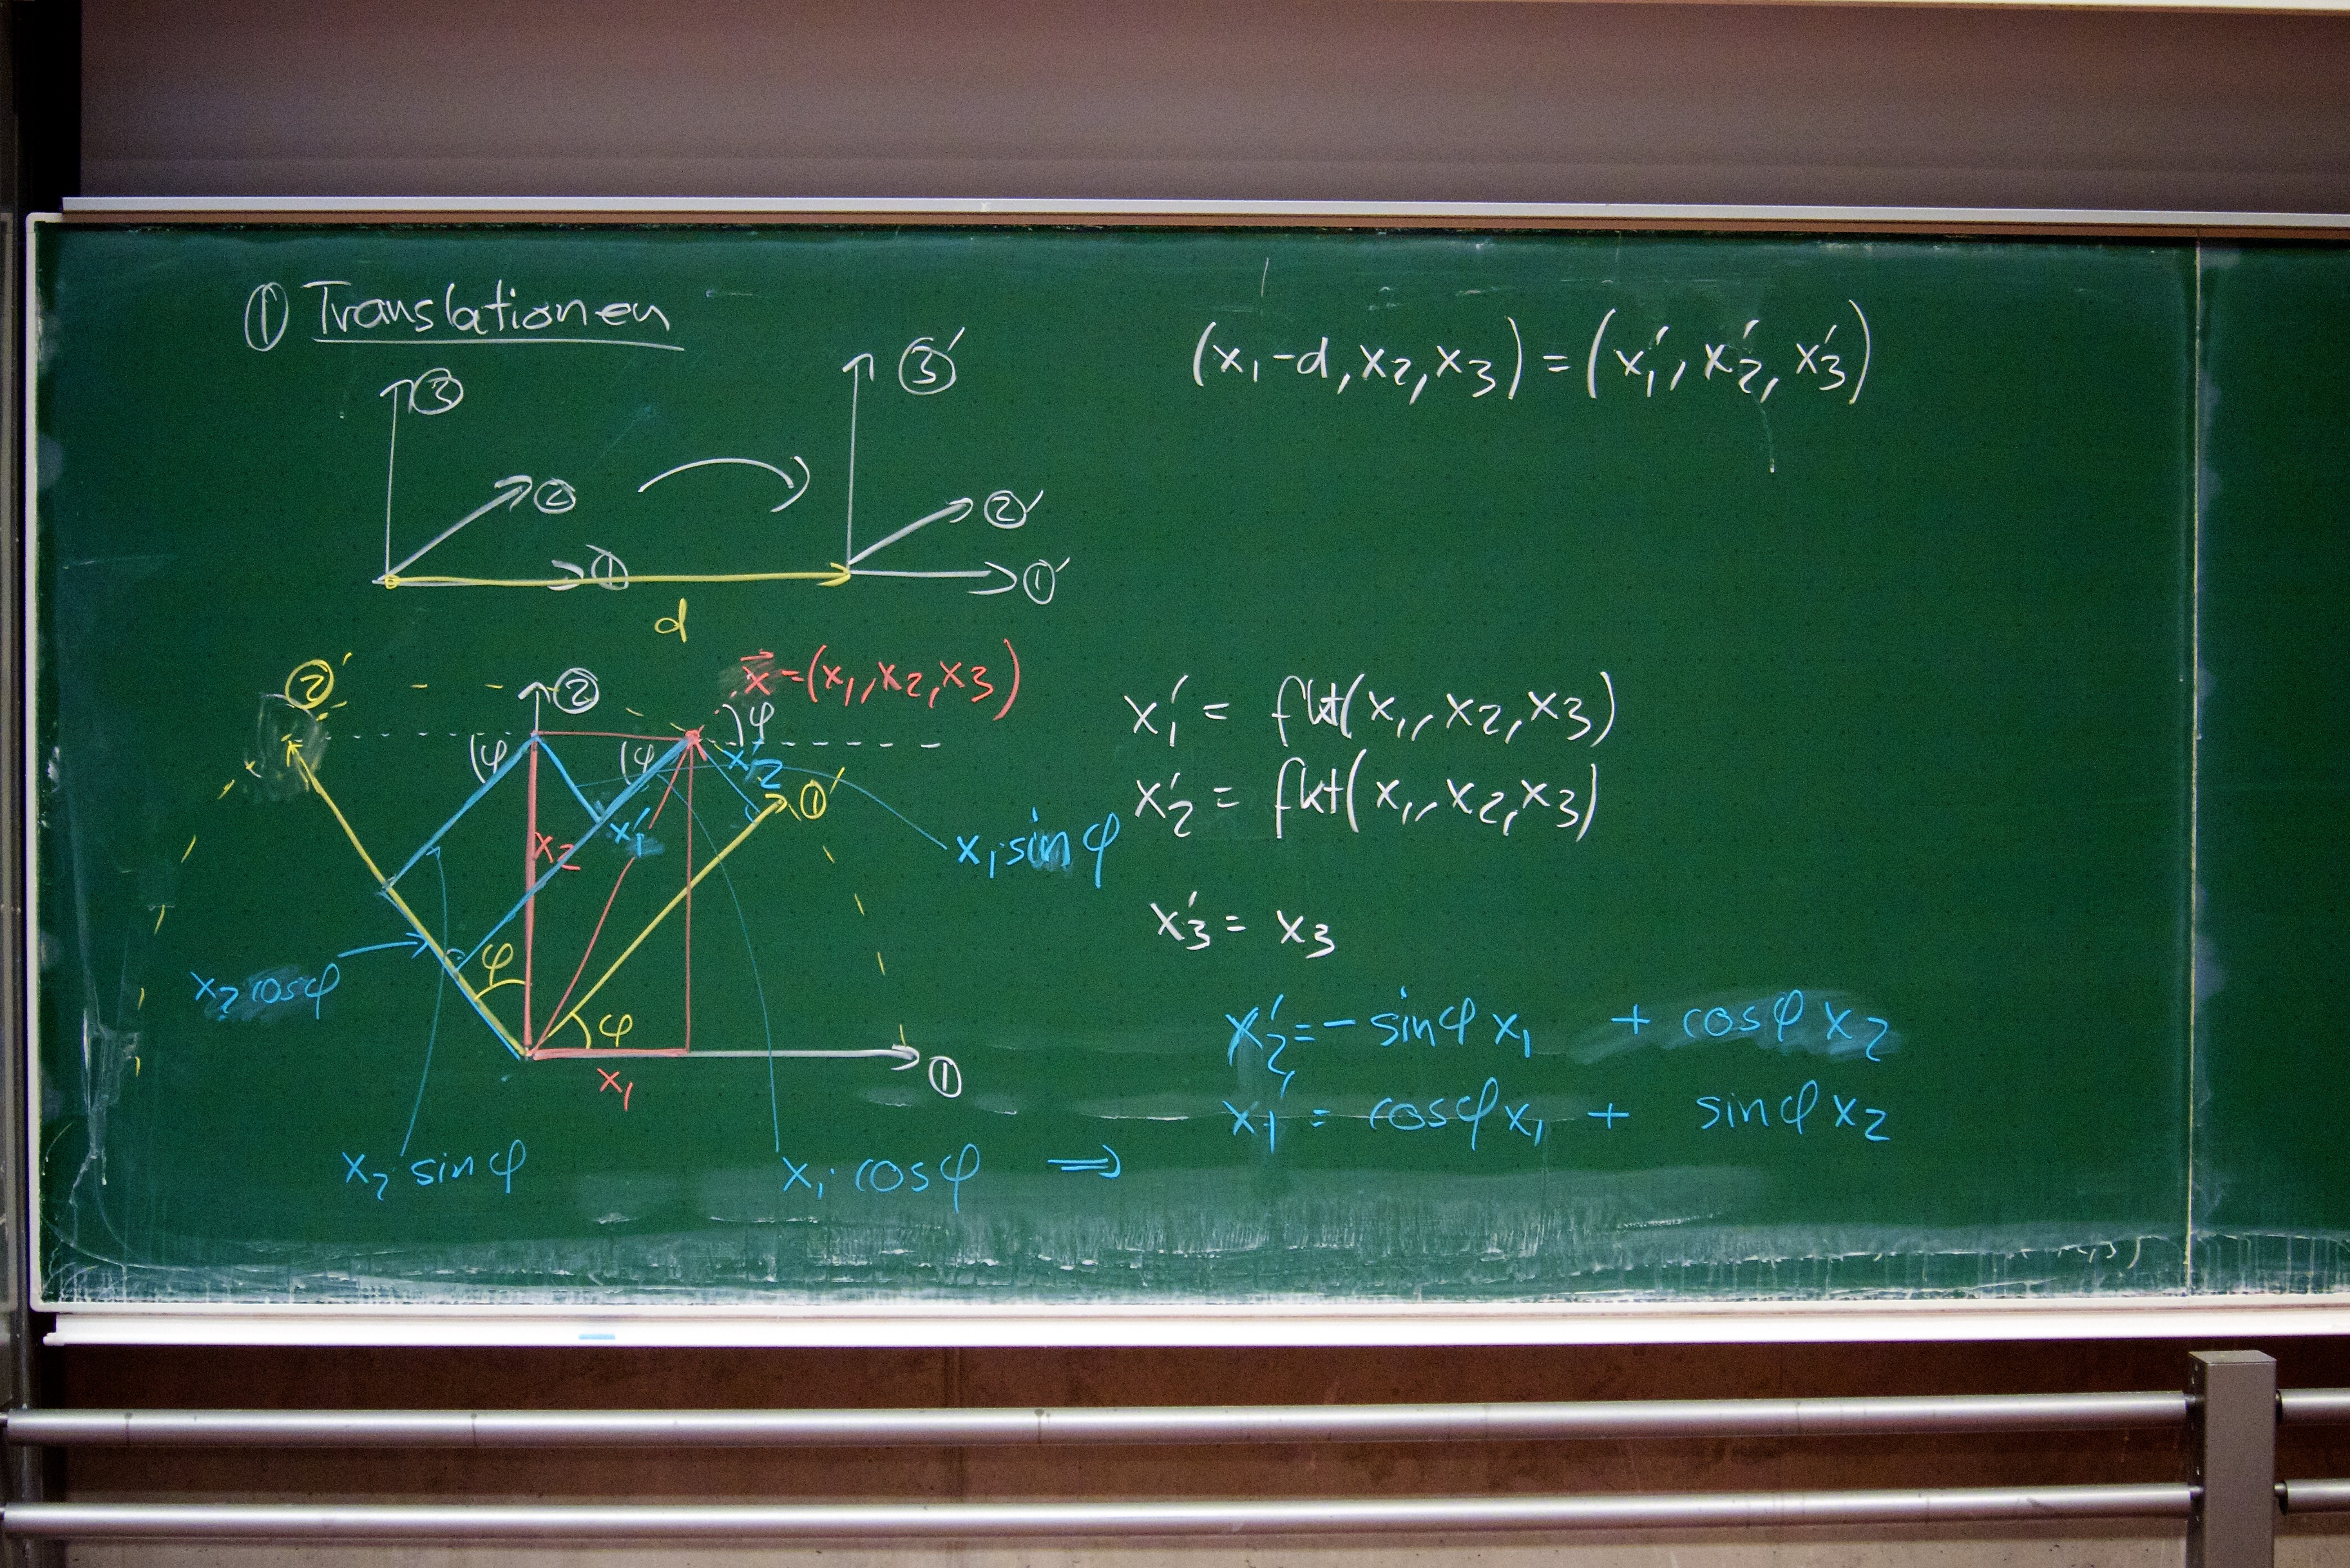 ① Translationen
(x₁-d, x₂, x₃) = (x₁', x₂', x₃')
③ ③'
② ②'
① ①'
d
②' ② x⃗=(x₁, x₂, x₃)
φ φ φ
x₂' ①'
x₂ x₁' x₁·sinφ
x₂ cosφ φ φ
x₁ ①
x₂·sinφ x₁·cosφ ⇒
x₁' = fkt(x₁, x₂, x₃)
x₂' = fkt(x₁, x₂, x₃)
x₃' = x₃
x₂' = - sinφ x₁ + cosφ x₂
x₁' = cosφ x₁ + sinφ x₂